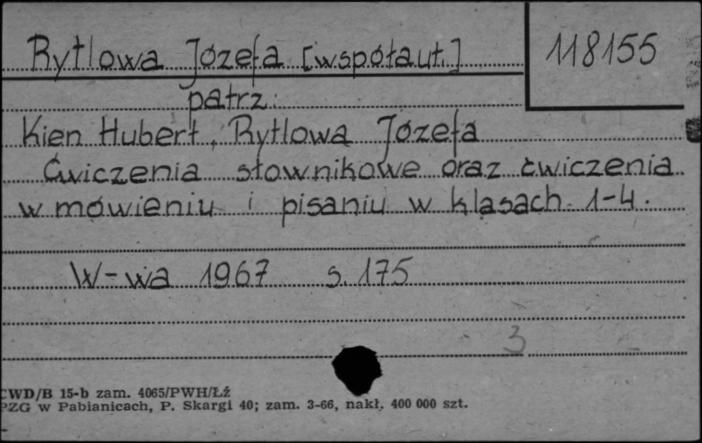 Rytlowa Józefa [współaut.] 118155
patrz:
Kien Hubert, Rytlowa Józefa
Ćwiczenia słownikowe oraz ćwiczenia
w mówieniu i pisaniu w klasach 1-4.
W-wa 1967 s. 175
3
CWD/B 15-b zam. 4065/PWH/Łź
PZG w Pabianicach, P. Skargi 40; zam. 3-66, nakł. 400 000 szt.